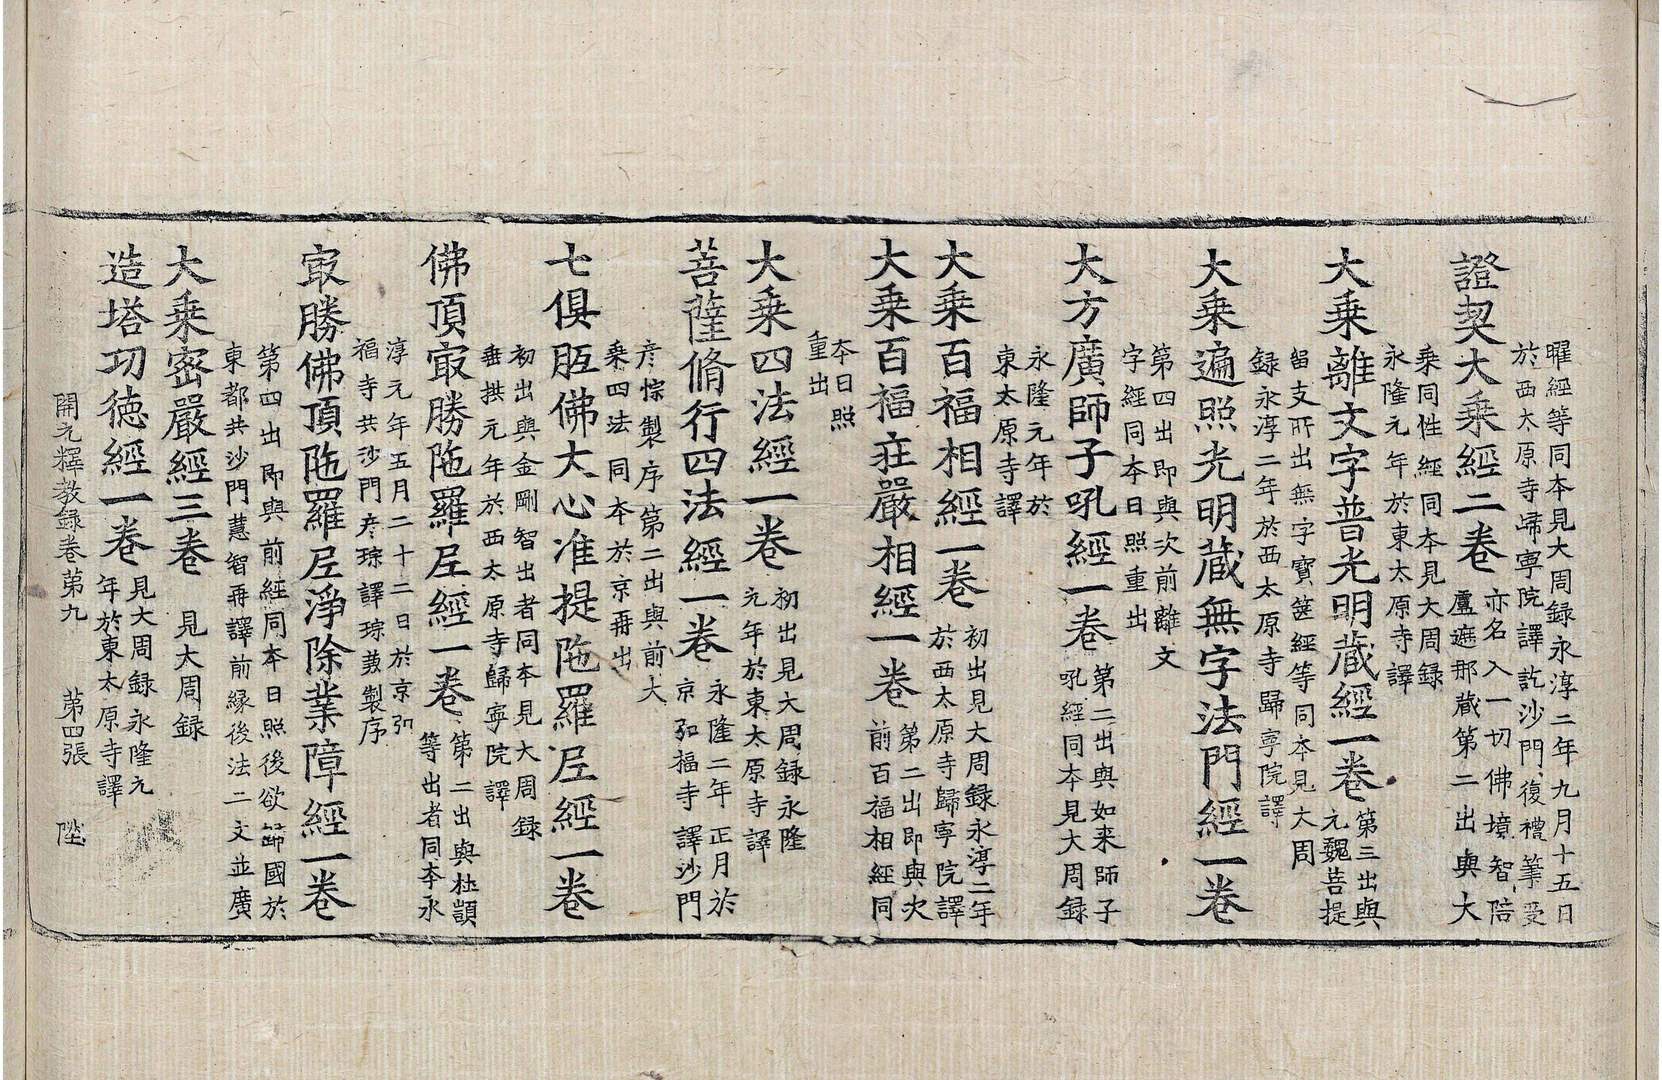 曜經等同本見大周録永淳二年九月十五日
於西太原寺歸寧院譯訖沙門復禮筆受
證契大乗經二卷
亦名入一切佛境智陪
盧遮那藏第二出與大
乗同性經同本見大周録
永隆元年於東太原寺譯
大乗離文字普光明藏經一卷
第三出與
元魏菩提
留支所出無字寶篋經等同本見大周
録永淳二年於西太原寺歸寧院譯
大乗遍照光明藏無字法門經一卷
第四出即與次前離文
字經同本日照重出
大方廣師子吼經一卷
第二出與如来師子
吼經同本見大周録
永隆元年於
東太原寺譯
大乗百福相經一卷
初出見大周録永淳二年
於西太原寺歸寧院譯
大乗百福莊嚴相經一卷
第二出即與次
前百福相經同
本日照
重出
大乗四法經一卷
初出見大周録永隆
元年於東太原寺譯
菩薩脩行四法經一卷
永隆二年正月於
京弘福寺譯沙門
彦悰製序第二出與前大
乗四法同本於京再出
七俱胝佛大心准提陁羅尼經一卷
初出與金剛智出者同本見大周録
垂拱元年於西太原寺歸寧院譯
佛頂㝡勝陁羅尼經一卷
第二出與杜顗
等出者同本永
淳元年五月二十二日於京弘
福寺共沙門彦琮譯琮兼製序
㝡勝佛頂陁羅尼淨除業障經一卷
第四出即與前經同本日照後欲歸國於
東都共沙門慧智再譯前緣後法二文並廣
大乗密嚴經三卷
見大周録
造塔功德經一卷
見大周録永隆元
年於東太原寺譯
開元釋教録卷第九 第四張 陞